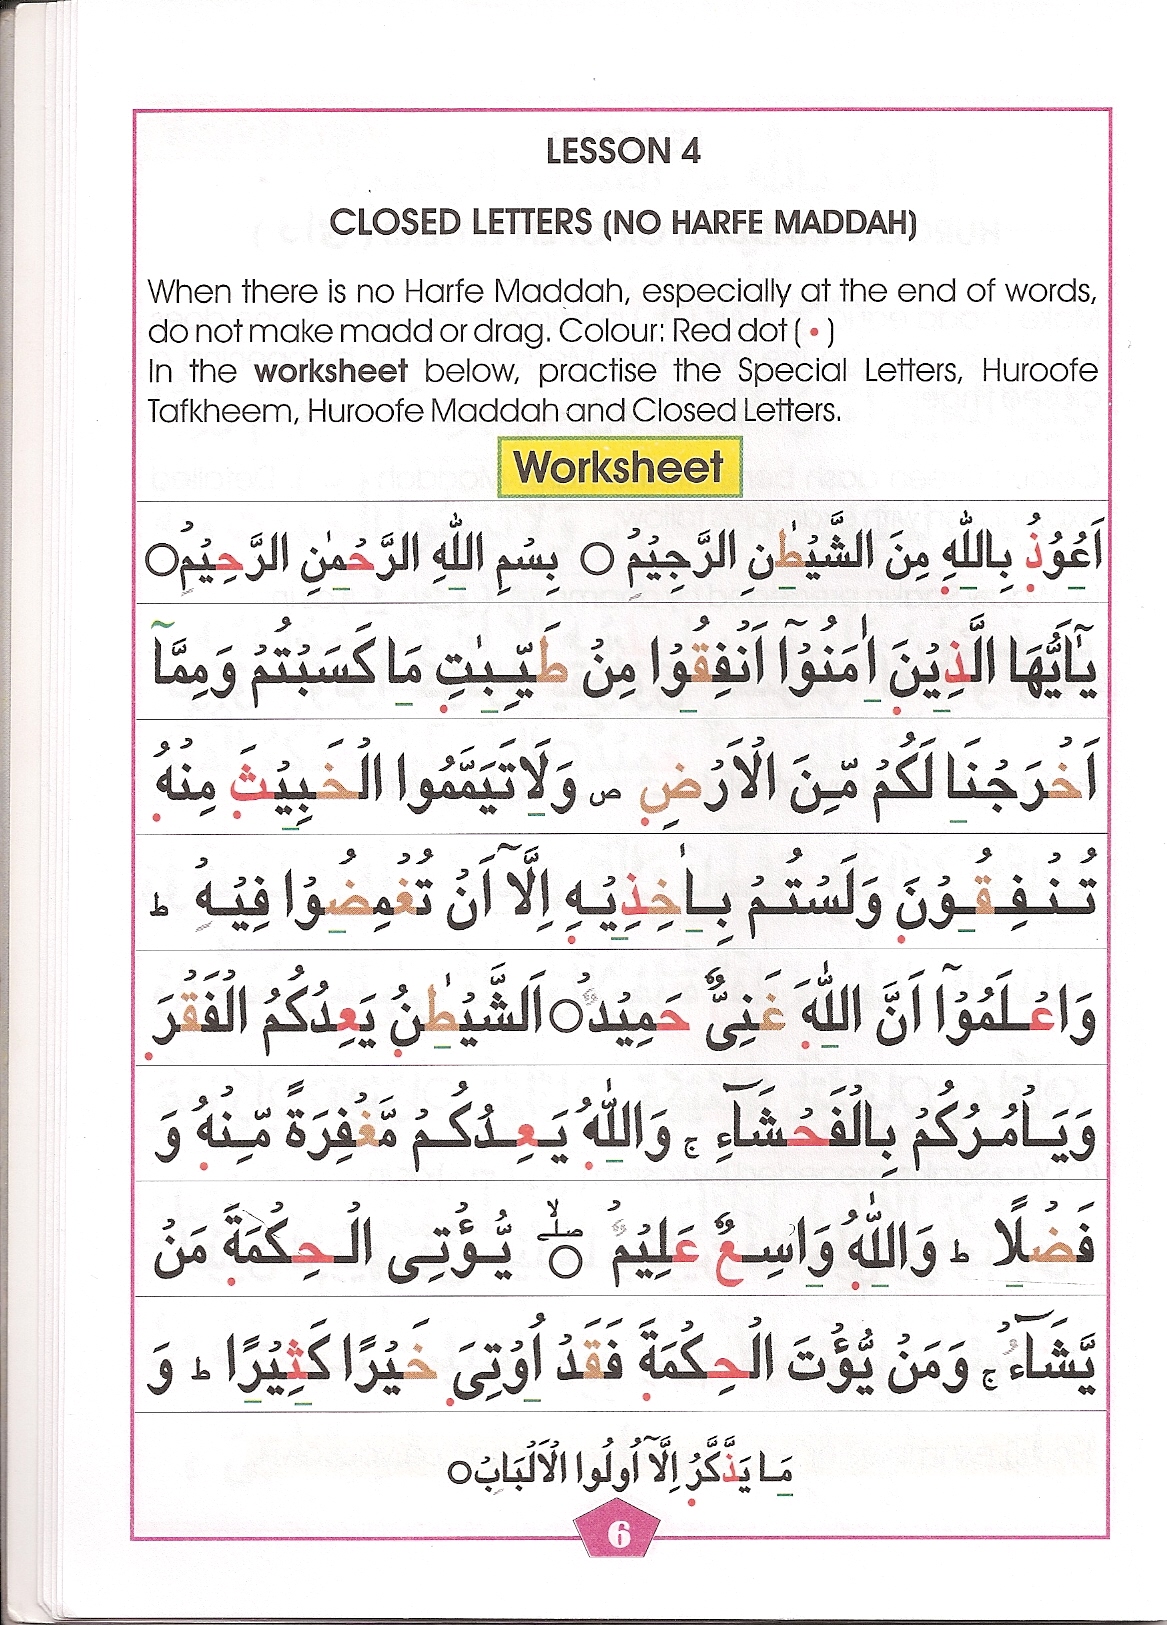 LESSON 4
CLOSED LETTERS (NO HARFE MADDAH)
When there is no Harfe Maddah, especially at the end of words,
do not make madd or drag. Colour: Red dot ( • )
In the worksheet below, practise the Special Letters, Huroofe
Tafkheem, Huroofe Maddah and Closed Letters.
Worksheet
اَعُوْذُ بِاللّٰهِ مِنَ الشَّيْطٰنِ الرَّجِيْمِْ ○ بِسْمِ اللّٰهِ الرَّحْمٰنِ الرَّحِيْمِْ○
يٰٓاَيُّهَا الَّذِيْنَ اٰمَنُوْٓا اَنْفِقُوْا مِنْ طَيِّبٰتِ مَا كَسَبْتُمْ وَمِمَّآ
اَخْرَجْنَا لَكُمْ مِّنَ الْاَرْضِ ص وَلَا تَيَمَّمُوا الْخَبِيْثَ مِنْهُ
تُنْفِقُوْنَ وَلَسْتُمْ بِاٰخِذِيْهِ اِلَّآ اَنْ تُغْمِضُوْا فِيْهِْ ط
وَاعْلَمُوْٓا اَنَّ اللّٰهَ غَنِىٌّ حَمِيْدٌْ○ اَلشَّيْطٰنُ يَعِدُكُمُ الْفَقْرَ
وَيَاْمُرُكُمْ بِالْفَحْشَآءِ ج وَاللّٰهُ يَعِدُكُمْ مَّغْفِرَةً مِّنْهُ وَ
فَضْلًا ط وَاللّٰهُ وَاسِعٌ عَلِيْمٌْ ○ صلے لا يُّؤْتِى الْحِكْمَةَ مَنْ
يَّشَآءُْ ج وَمَنْ يُّؤْتَ الْحِكْمَةَ فَقَدْ اُوْتِىَ خَيْرًا كَثِيْرًا ط وَ
مَا يَذَّكَّرُ اِلَّآ اُولُوا الْاَلْبَابِْ○
6